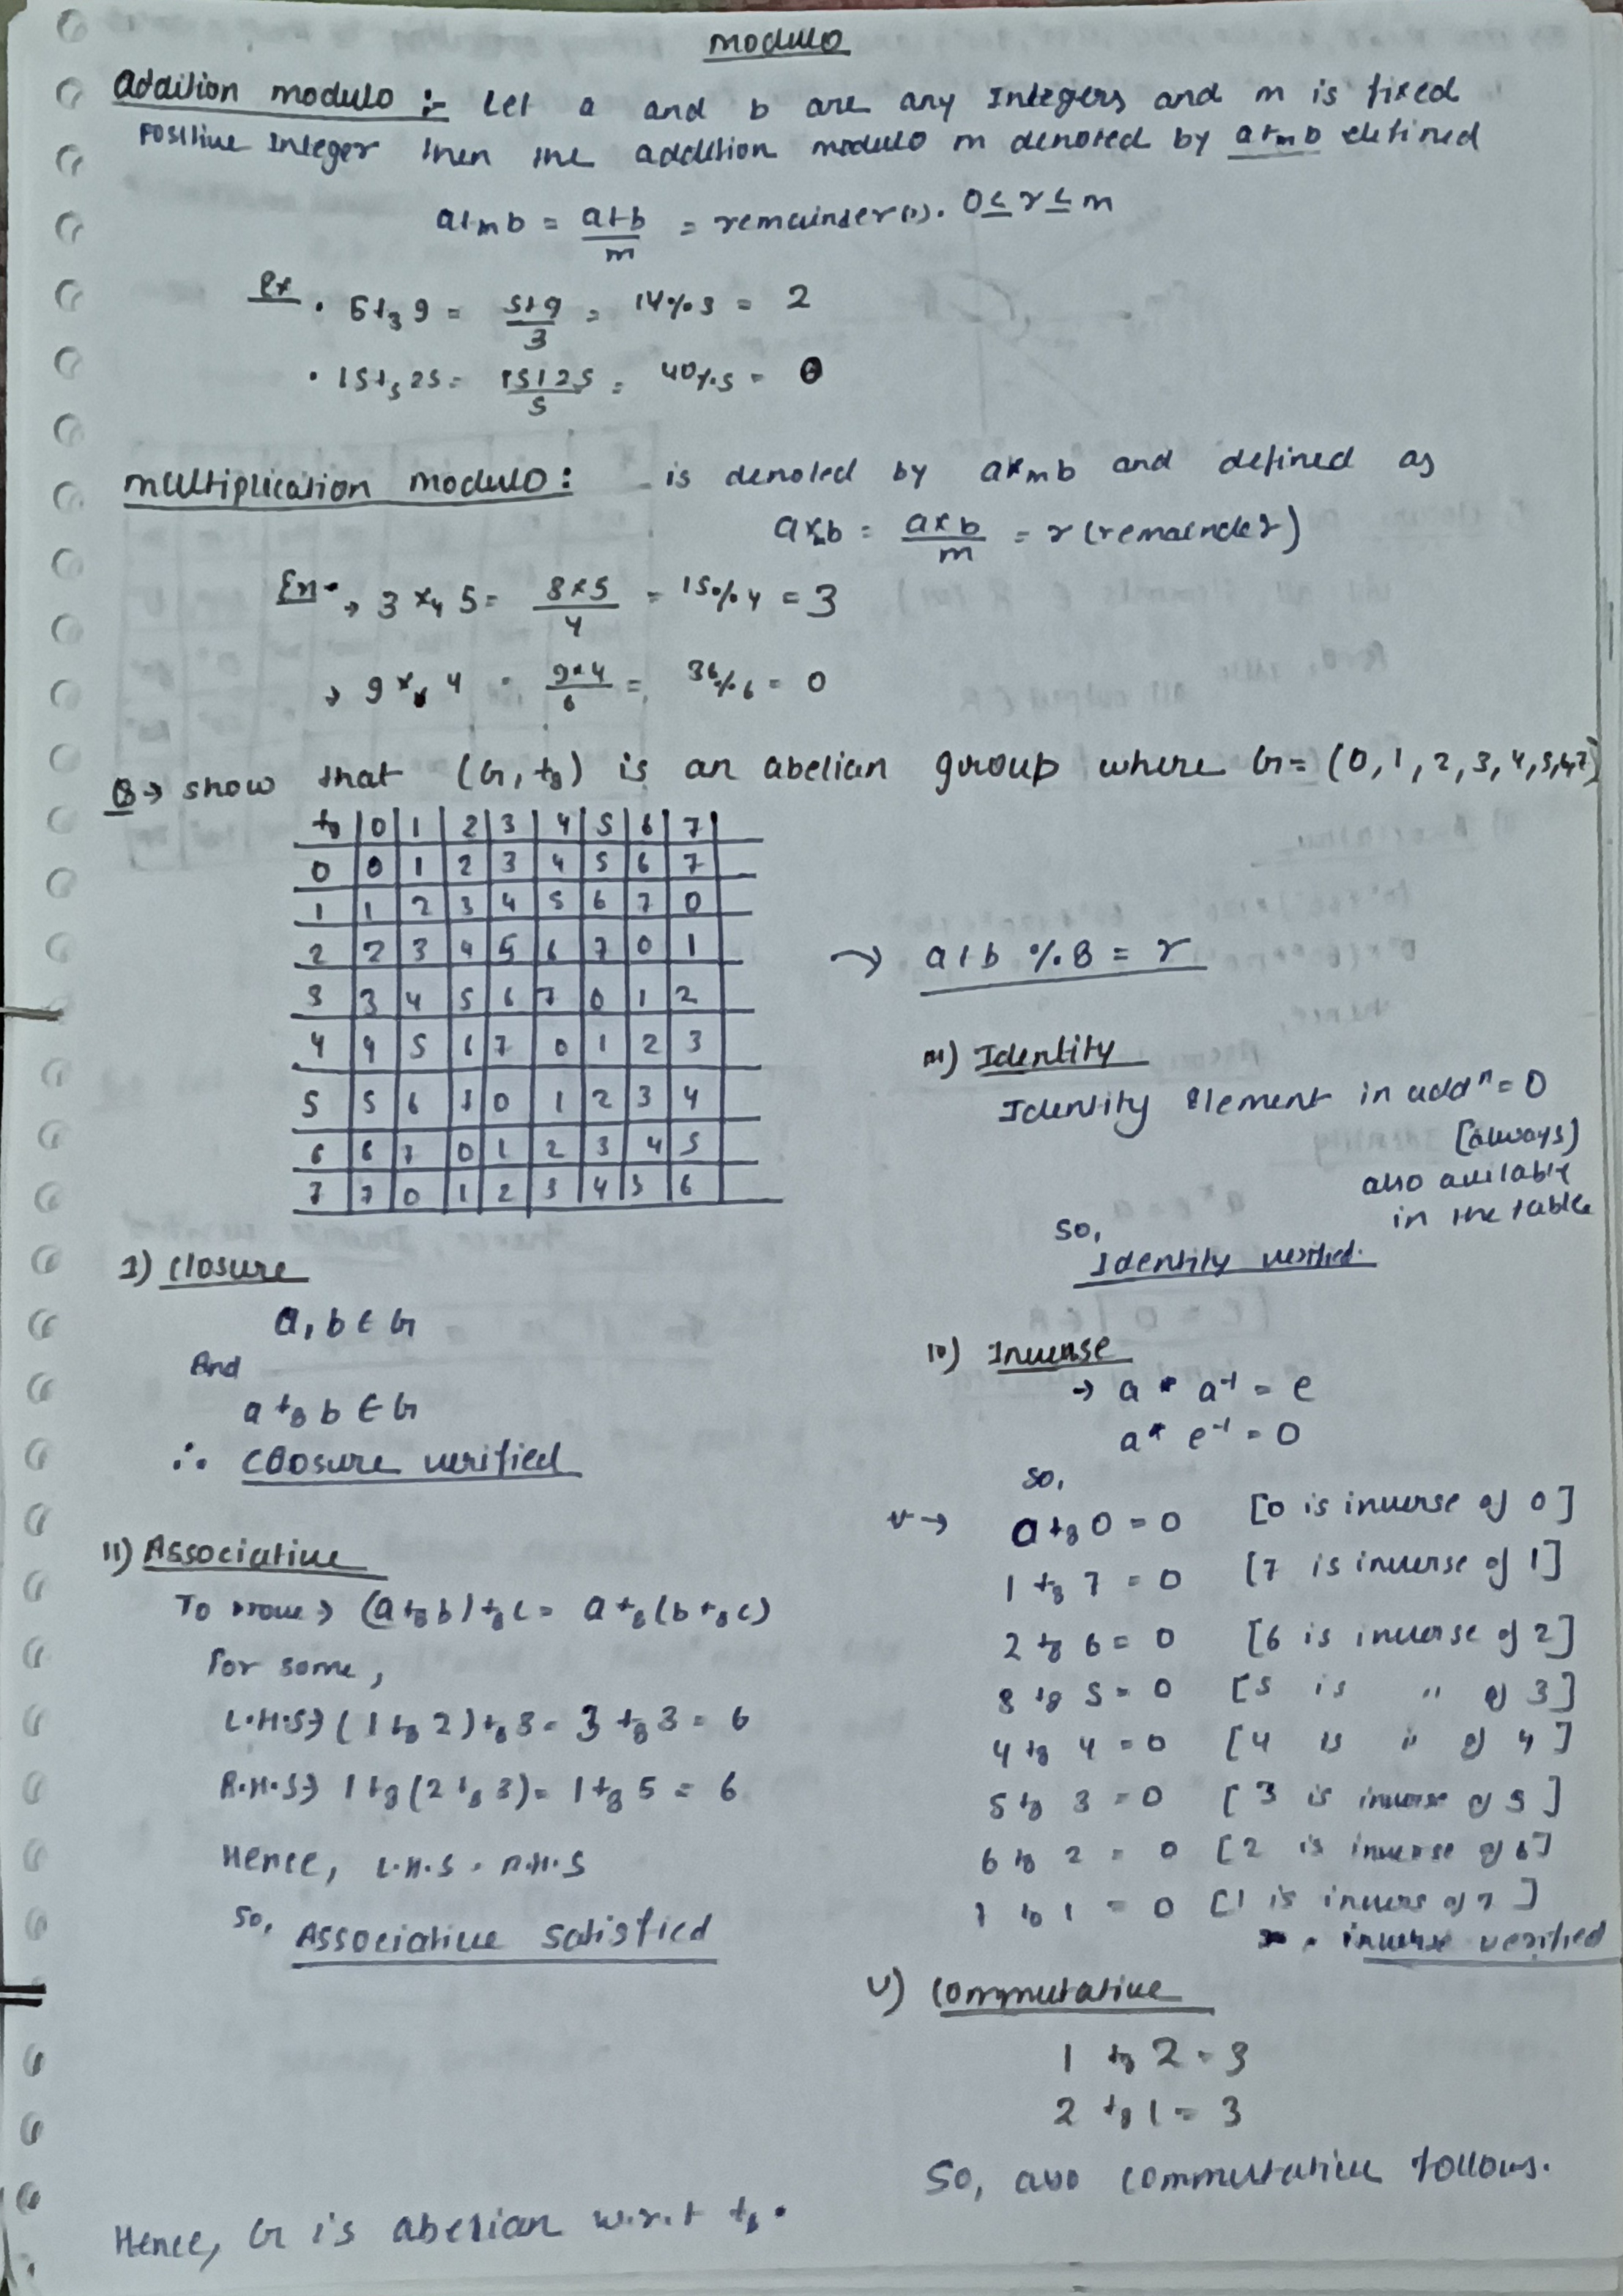 modulo
Addition modulo :- Let a and b are any Integers and m is fixed
Positive Integer then the addition modulo m denoted by a+mb defined
a+mb = a+b/m = remainder(r). 0≤r≤m
Ex • 5+₃9 = 5+9/3 = 14%3 = 2
• 15+₅25 = 15+25/5 = 40%5 = 0
multiplication modulo: is denoted by a×mb and defined as
a×mb = a×b/m = r (remainder)
Ex → 3×₄5 = 3×5/4 = 15%4 = 3
→ 9×₆4 = 9×4/6 = 36%6 = 0
Q→ show that (G, +₈) is an abelian group where G = (0,1,2,3,4,5,6,7)
+₈ 0 1 2 3 4 5 6 7
0 0 1 2 3 4 5 6 7
1 1 2 3 4 5 6 7 0
2 2 3 4 5 6 7 0 1
3 3 4 5 6 7 0 1 2
4 4 5 6 7 0 1 2 3
5 5 6 7 0 1 2 3 4
6 6 7 0 1 2 3 4 5
7 7 0 1 2 3 4 5 6
→ a+b % 8 = r
I) Closure
a, b ∈ G
And
a +₈ b ∈ G
∴ Closure verified
II) Associative
To prove → (a+₈b)+₈c = a+₈(b+₈c)
For some,
L.H.S→ (1+₈2)+₈3 = 3+₈3 = 6
R.H.S→ 1+₈(2+₈3) = 1+₈5 = 6
Hence, L.H.S = R.H.S
So, Associative satisfied
III) Identity
Identity Element in addⁿ = 0
[always)
also available
in the table
So,
Identity verified.
IV) Inverse
→ a * a⁻¹ = e
a * e⁻¹ = 0
So,
→ 0 +₈ 0 = 0 [0 is inverse of 0]
1 +₈ 7 = 0 [7 is inverse of 1]
2 +₈ 6 = 0 [6 is inverse of 2]
3 +₈ 5 = 0 [5 is " of 3]
4 +₈ 4 = 0 [4 is " of 4]
5 +₈ 3 = 0 [3 is inverse of 5]
6 +₈ 2 = 0 [2 is inverse of 6]
7 +₈ 1 = 0 [1 is invers of 7]
inverse verified
V) Commutative
1 +₈ 2 = 3
2 +₈ 1 = 3
So, also commutative follows.
Hence, G is abelian w.r.t +₈.